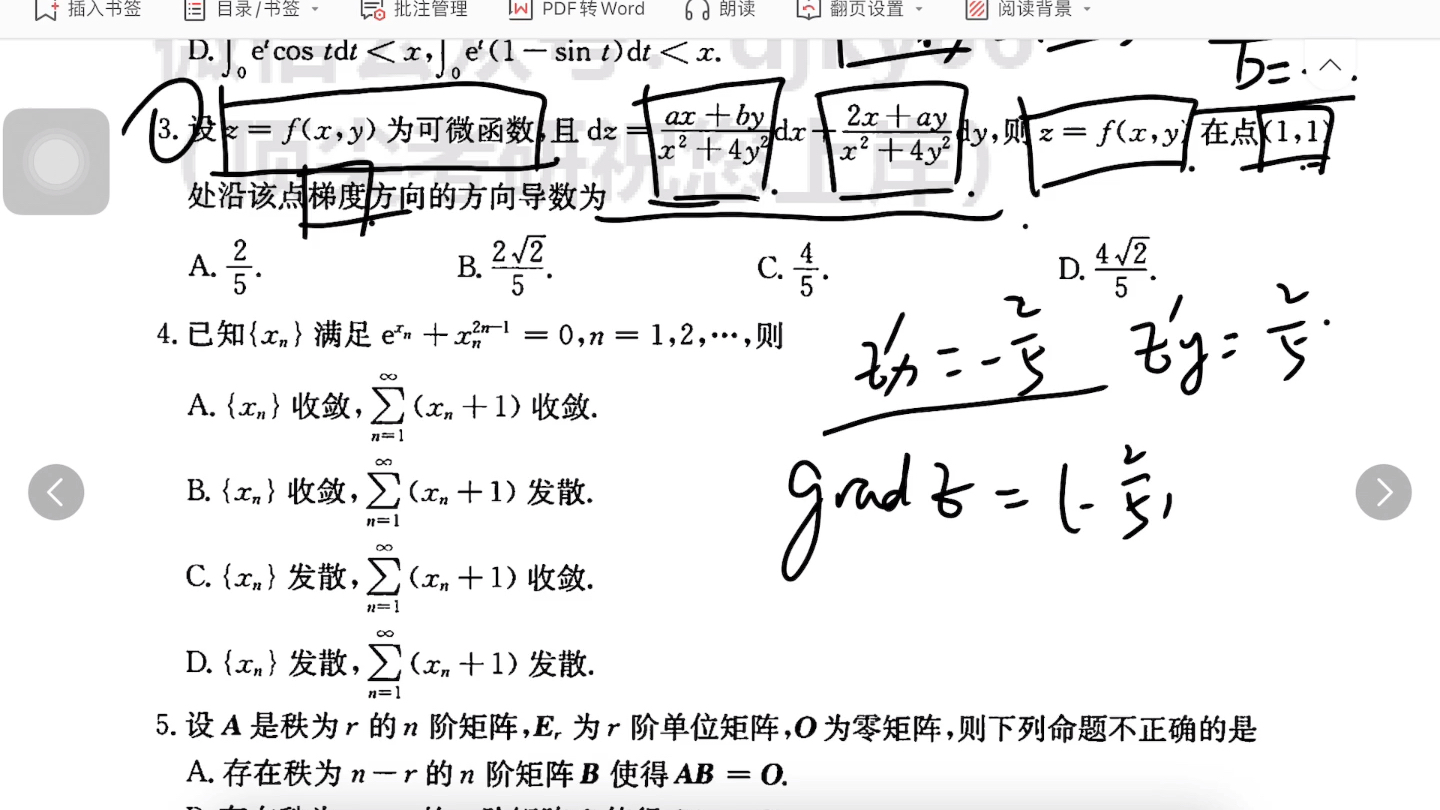 插入书签 目录/书签 批注管理 PDF转Word 朗读 翻页设置 阅读背景
D. ∫₀ eᵗcos tdt < x, ∫₀ eᵗ(1 − sin t)dt < x.
b=
3. 设 z = f(x,y) 为可微函数,且 dz = (ax + by)/(x² + 4y²) dx + (2x + ay)/(x² + 4y²) dy,则 z = f(x,y) 在点(1,1)
处沿该点梯度方向的方向导数为
A. 2/5. B. 2√2/5. C. 4/5. D. 4√2/5.
z'x = -2/5 z'y = 2/5.
4. 已知{xₙ} 满足 e^{xₙ} + xₙ^{2n−1} = 0, n = 1,2,⋯,则
A. {xₙ} 收敛, ∑_{n=1}^{∞} (xₙ + 1) 收敛.
grad z = (-2/5,
B. {xₙ} 收敛, ∑_{n=1}^{∞} (xₙ + 1) 发散.
C. {xₙ} 发散, ∑_{n=1}^{∞} (xₙ + 1) 收敛.
D. {xₙ} 发散, ∑_{n=1}^{∞} (xₙ + 1) 发散.
5. 设 A 是秩为 r 的 n 阶矩阵, Eᵣ 为 r 阶单位矩阵, O 为零矩阵,则下列命题不正确的是
A. 存在秩为 n − r 的 n 阶矩阵 B 使得 AB = O.